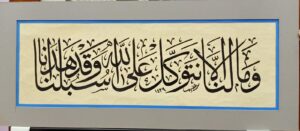 وَمَا لَنَا أَلَّا نَتَوَكَّلَ عَلَى اللَّهِ وَقَدْ هَدَانَا سُبُلَنَا